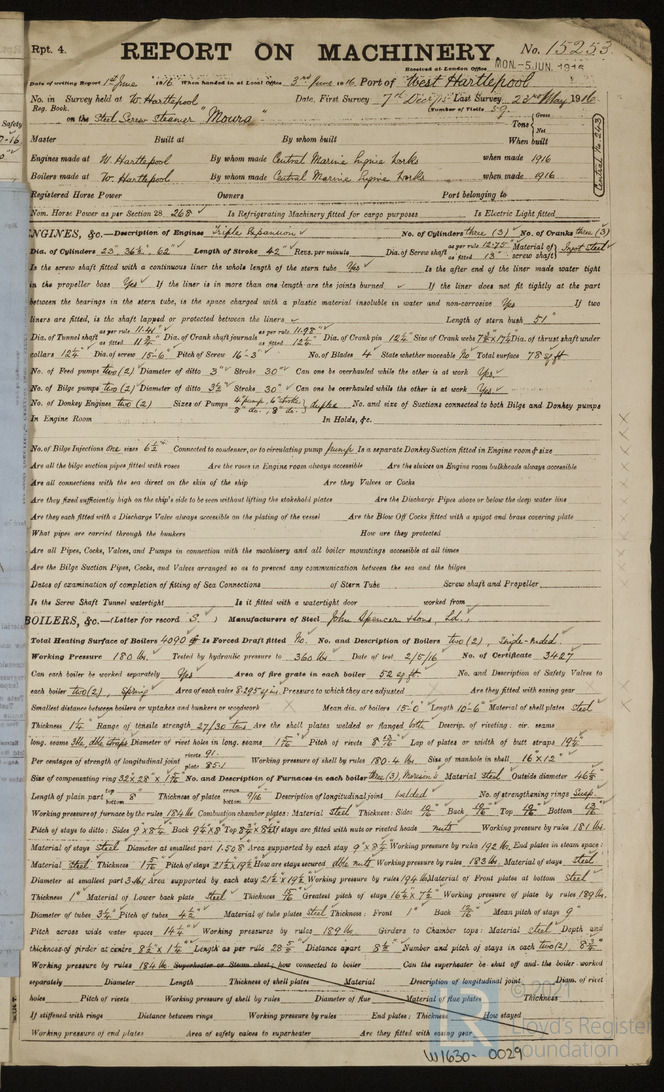 Rpt. 4.
REPORT ON MACHINERY. No. 15253
Received at London Office MON. -5 JUN. 1916
Date of writing Report 1st June 1916 When handed in at Local Office 3rd June 1916 Port of West Hartlepool
No. in Survey held at W. Hartlepool Date, First Survey 7th Dec 15 Last Survey 23rd May 1916
Reg. Book. (Number of Visits 39
on the Steel Screw Steamer "Moura" Tons Gross Net
Master Built at By whom built When built
Engines made at W. Hartlepool By whom made Central Marine Engine Works when made 1916
Boilers made at W. Hartlepool By whom made Central Marine Engine Works when made 1916
Central No. 243
Registered Horse Power Owners Port belonging to
Nom. Horse Power as per Section 28 268 Is Refrigerating Machinery fitted for cargo purposes Is Electric Light fitted
NGINES, &c.—Description of Engines Triple Expansion No. of Cylinders three (3) No. of Cranks three (3)
Dia. of Cylinders 23", 36½", 62" Length of Stroke 42" Revs. per minute Dia. of Screw shaft as per rule 12.75" as fitted 13" Material of screw shaft Ingot steel
Is the screw shaft fitted with a continuous liner the whole length of the stern tube Yes Is the after end of the liner made water tight
in the propeller boss Yes If the liner is in more than one length are the joints burned If the liner does not fit tightly at the part
between the bearings in the stern tube, is the space charged with a plastic material insoluble in water and non-corrosive Yes If two
liners are fitted, is the shaft lapped or protected between the liners Length of stern bush 51"
Dia. of Tunnel shaft as per rule 11.41" as fitted Dia. of Crank shaft journals as per rule 11.98" as fitted 12¼" Dia. of Crank pin 12¼" Size of Crank webs Dia. of thrust shaft under
collars 12¼" Dia. of screw 15-6" Pitch of Screw 16-3" No. of Blades 4 State whether moveable No Total surface 78 sq ft
No. of Feed pumps two (2) Diameter of ditto 3" Stroke 30" Can one be overhauled while the other is at work Yes
No. of Bilge pumps two (2) Diameter of ditto 3½" Stroke 30" Can one be overhauled while the other is at work Yes
No. of Donkey Engines two (2) Sizes of Pumps duplex No. and size of Suctions connected to both Bilge and Donkey pumps
In Engine Room In Holds, &c.
No. of Bilge Injections one sizes 6½" Connected to condenser, or to circulating pump pump Is a separate Donkey Suction fitted in Engine room & size
Are all the bilge suction pipes fitted with roses Are the roses in Engine room always accessible Are the sluices on Engine room bulkheads always accessible
Are all connections with the sea direct on the skin of the ship Are they Valves or Cocks
Are they fixed sufficiently high on the ship's side to be seen without lifting the stokehold plates Are the Discharge Pipes above or below the deep water line
Are they each fitted with a Discharge Valve always accessible on the plating of the vessel Are the Blow Off Cocks fitted with a spigot and brass covering plate
What pipes are carried through the bunkers How are they protected
Are all Pipes, Cocks, Valves, and Pumps in connection with the machinery and all boiler mountings accessible at all times
Are the Bilge Suction Pipes, Cocks, and Valves arranged so as to prevent any communication between the sea and the bilges
Dates of examination of completion of fitting of Sea Connections of Stern Tube Screw shaft and Propeller
Is the Screw Shaft Tunnel watertight Is it fitted with a watertight door worked from
BOILERS, &c.—(Letter for record S.) Manufacturers of Steel John Spencer & Sons, Ld.,
Total Heating Surface of Boilers 4090 Is Forced Draft fitted No. No. and Description of Boilers two (2), Single-ended
Working Pressure 180 lbs. Tested by hydraulic pressure to 360 lbs Date of test 2/5/16 No. of Certificate 3427
Can each boiler be worked separately Yes Area of fire grate in each boiler 52 sq ft. No. and Description of Safety Valves to
each boiler two (2), Spring Area of each valve 8.295 sq ins. Pressure to which they are adjusted Are they fitted with easing gear
Smallest distance between boilers or uptakes and bunkers or woodwork Mean dia. of boilers 15-0" Length 10-6" Material of shell plates Steel
Thickness Range of tensile strength 27/30 tons Are the shell plates welded or flanged both Descrip. of riveting: cir. seams
long. seams Diameter of rivet holes in long. seams Pitch of rivets Lap of plates or width of butt straps 19½"
Per centages of strength of longitudinal joint rivets 91. plate 85.1 Working pressure of shell by rules 180.4 lbs. Size of manhole in shell 16" x 12"
Size of compensating ring No. and Description of Furnaces in each boiler three (3), Morison's Material Steel Outside diameter
Length of plain part top bottom 8" Thickness of plates crown bottom 9/16 Description of longitudinal joint welded No. of strengthening rings Susp.
Working pressure of furnace by the rules 184 lbs Combustion chamber plates: Material Steel Thickness: Sides Back Top Bottom
Pitch of stays to ditto: Sides Back Top If stays are fitted with nuts or riveted heads nuts Working pressure by rules 181 lbs.
Material of stays Steel Diameter at smallest part 1.508" Area supported by each stay Working pressure by rules 192 lbs. End plates in steam space:
Material Steel Thickness Pitch of stays How are stays secured dble nuts Working pressure by rules 183 lbs. Material of stays Steel
Diameter at smallest part Area supported by each stay Working pressure by rules 194 lbs. Material of Front plates at bottom Steel
Thickness 1" Material of Lower back plate Steel Thickness Greatest pitch of stays Working pressure of plate by rules 189 lbs.
Diameter of tubes 3¼" Pitch of tubes 4½" Material of tube plates Steel Thickness: Front 1" Back Mean pitch of stays 9"
Pitch across wide water spaces 14¼" Working pressures by rules 189 lbs. Girders to Chamber tops: Material Steel Depth and
thickness of girder at centre Length as per rule Distance apart Number and pitch of stays in each two (2)
Working pressure by rules 184 lbs Superheater or Steam chest; how connected to boiler Can the superheater be shut off and the boiler worked
separately Diameter Length Thickness of shell plates Material Description of longitudinal joint Diam. of rivet
holes Pitch of rivets Working pressure of shell by rules Diameter of flue Material of flue plates Thickness
If stiffened with rings Distance between rings Working pressure by rules End plates: Thickness How stayed
Working pressure of end plates Area of safety valves to superheater Are they fitted with easing gear
© 2021
LR
Lloyd's Register
Foundation
W1630-0029